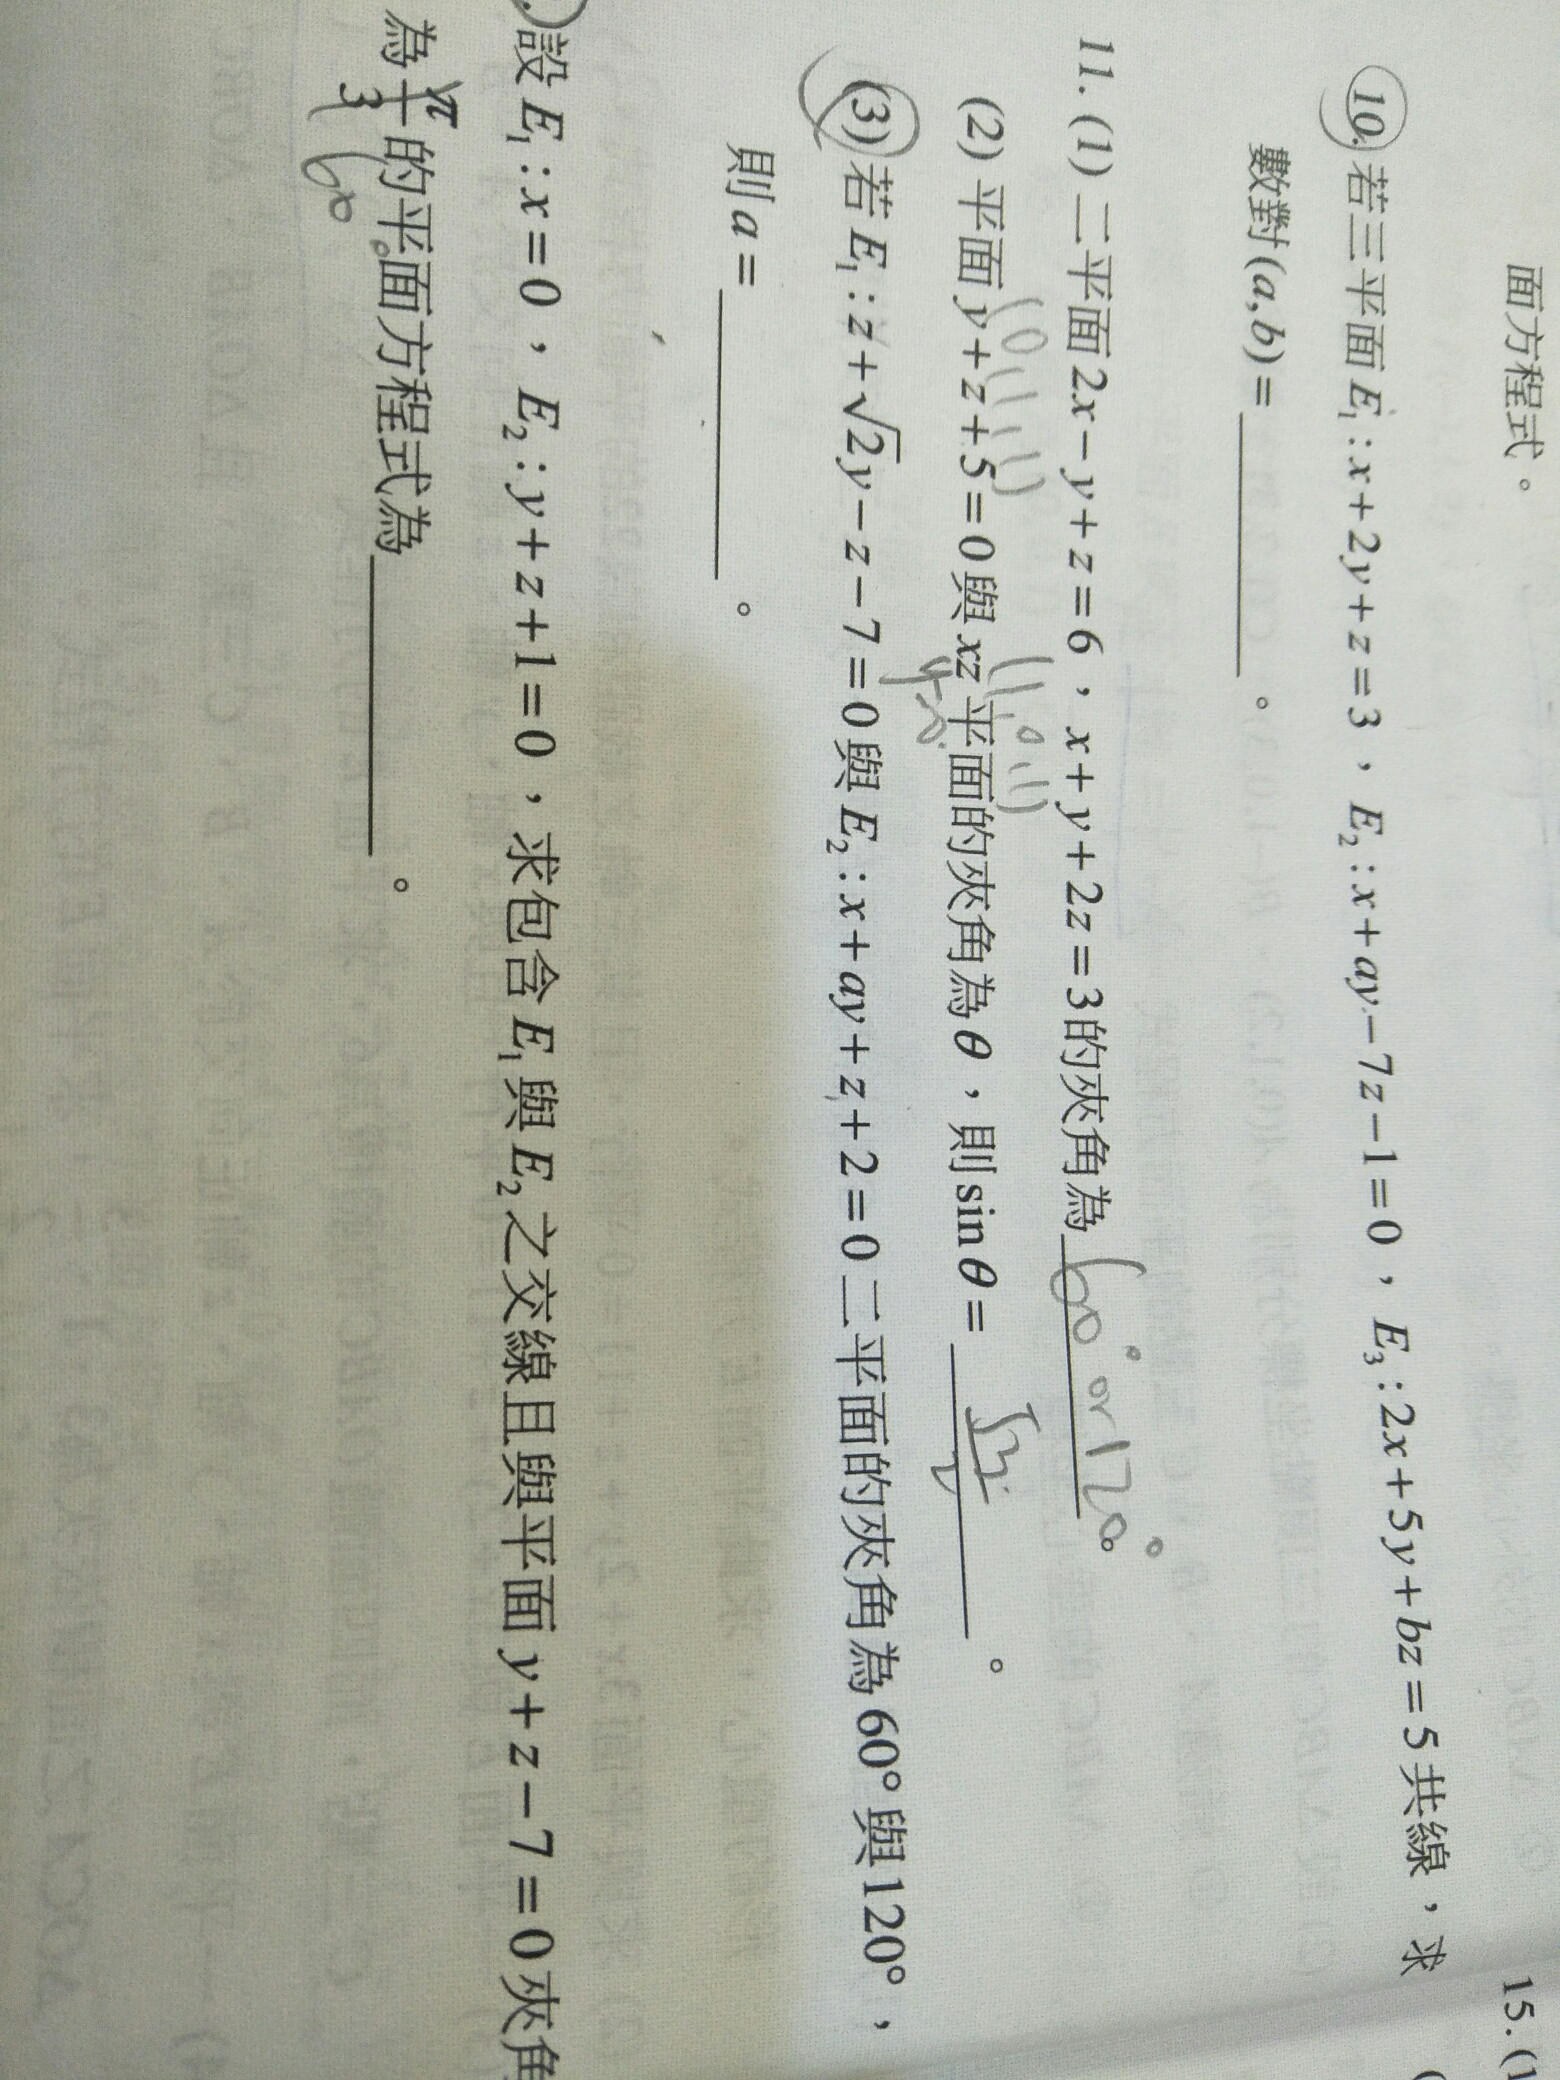 面方程式。
10. 若三平面 E₁:x+2y+z=3,E₂:x+ay-7z-1=0,E₃:2x+5y+bz=5共線,求
數對(a,b)=________。
11. (1) 二平面2x-y+z=6,x+y+2z=3的夾角為 60° or 120°。
(0,1,1) (1,0,1)
(2) 平面y+z+5=0與xz平面的夾角為θ,則sinθ= √2/2 。
y=0
(3) 若E₁:z+√2y-z-7=0與E₂:x+ay+z+2=0二平面的夾角為60°與120°,
則a=________。
設E₁:x=0,E₂:y+z+1=0,求包含E₁與E₂之交線且與平面y+z-7=0夾角
為π/3的平面方程式為________。
60°
15. (1